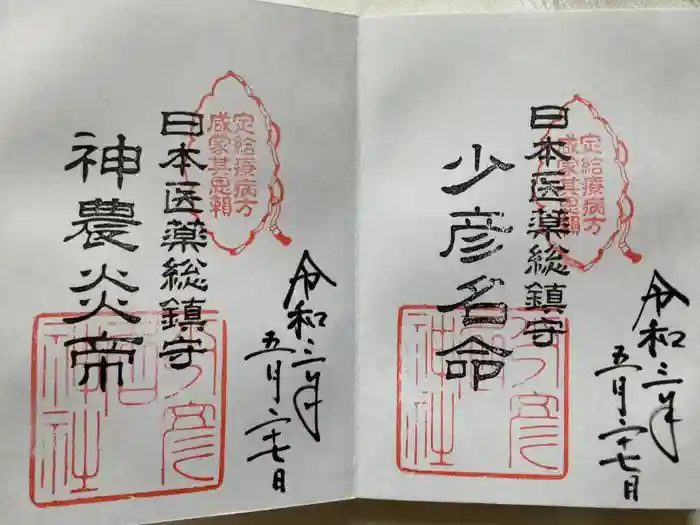 令和二年
五月二十七日
定給療病方
咸蒙其恩頼
日本医薬総鎮守
少彦名命
少彦
名
神社
令和二年
五月二十七日
定給療病方
咸蒙其恩頼
日本医薬総鎮守
神農炎帝
少彦
名
神社